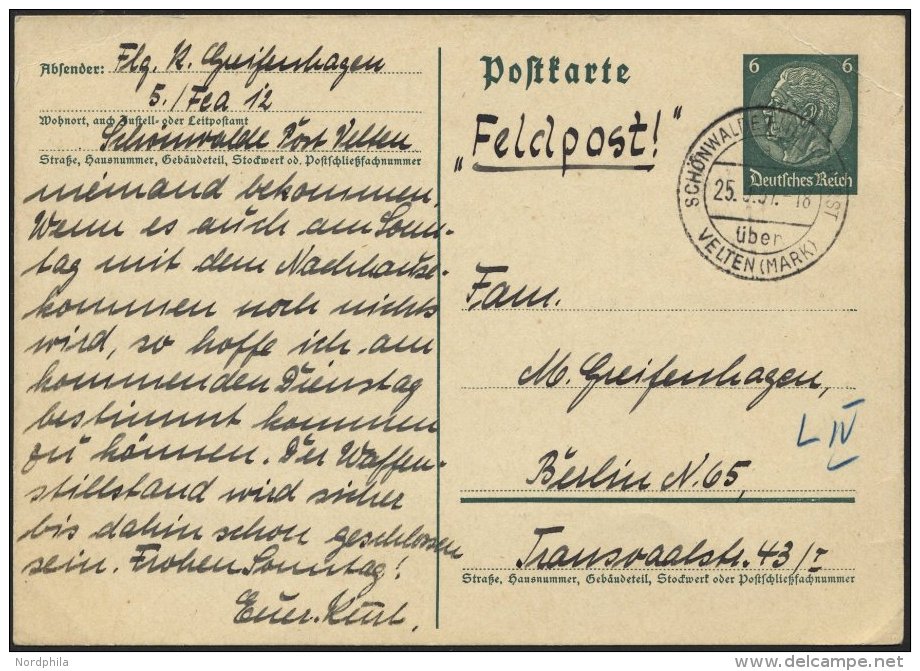 Absender: Flg. K. Greifenhagen
5./Fea 12
Wohnort, auch Zustell- oder Leitpostamt
Schönwalde Post Velten
Straße, Hausnummer, Gebäudeteil, Stockwerk od. Postschließfachnummer
niemand bekommen.
Wenn es auch am Sonn-
tag mit dem Nachhause-
kommen noch nichts
wird, so hoffe ich am
kommenden Dienstag
bestimmt kommen
zu können. Der Waffen-
stillstand wird sicher
bis dahin schon geschlossen
sein. Frohen Sonntag!
Euer Kurt.
Postkarte
"Feldpost!"
6 6
Deutsches Reich
SCHÖNWALDE
25.
18
über
VELTEN (MARK)
Fam.
M. Greifenhagen,
L IV
Berlin N. 65,
Transvaalstr. 43/I
Straße, Hausnummer, Gebäudeteil, Stockwerk oder Postschließfachnummer
Nordphila
delcampe.net